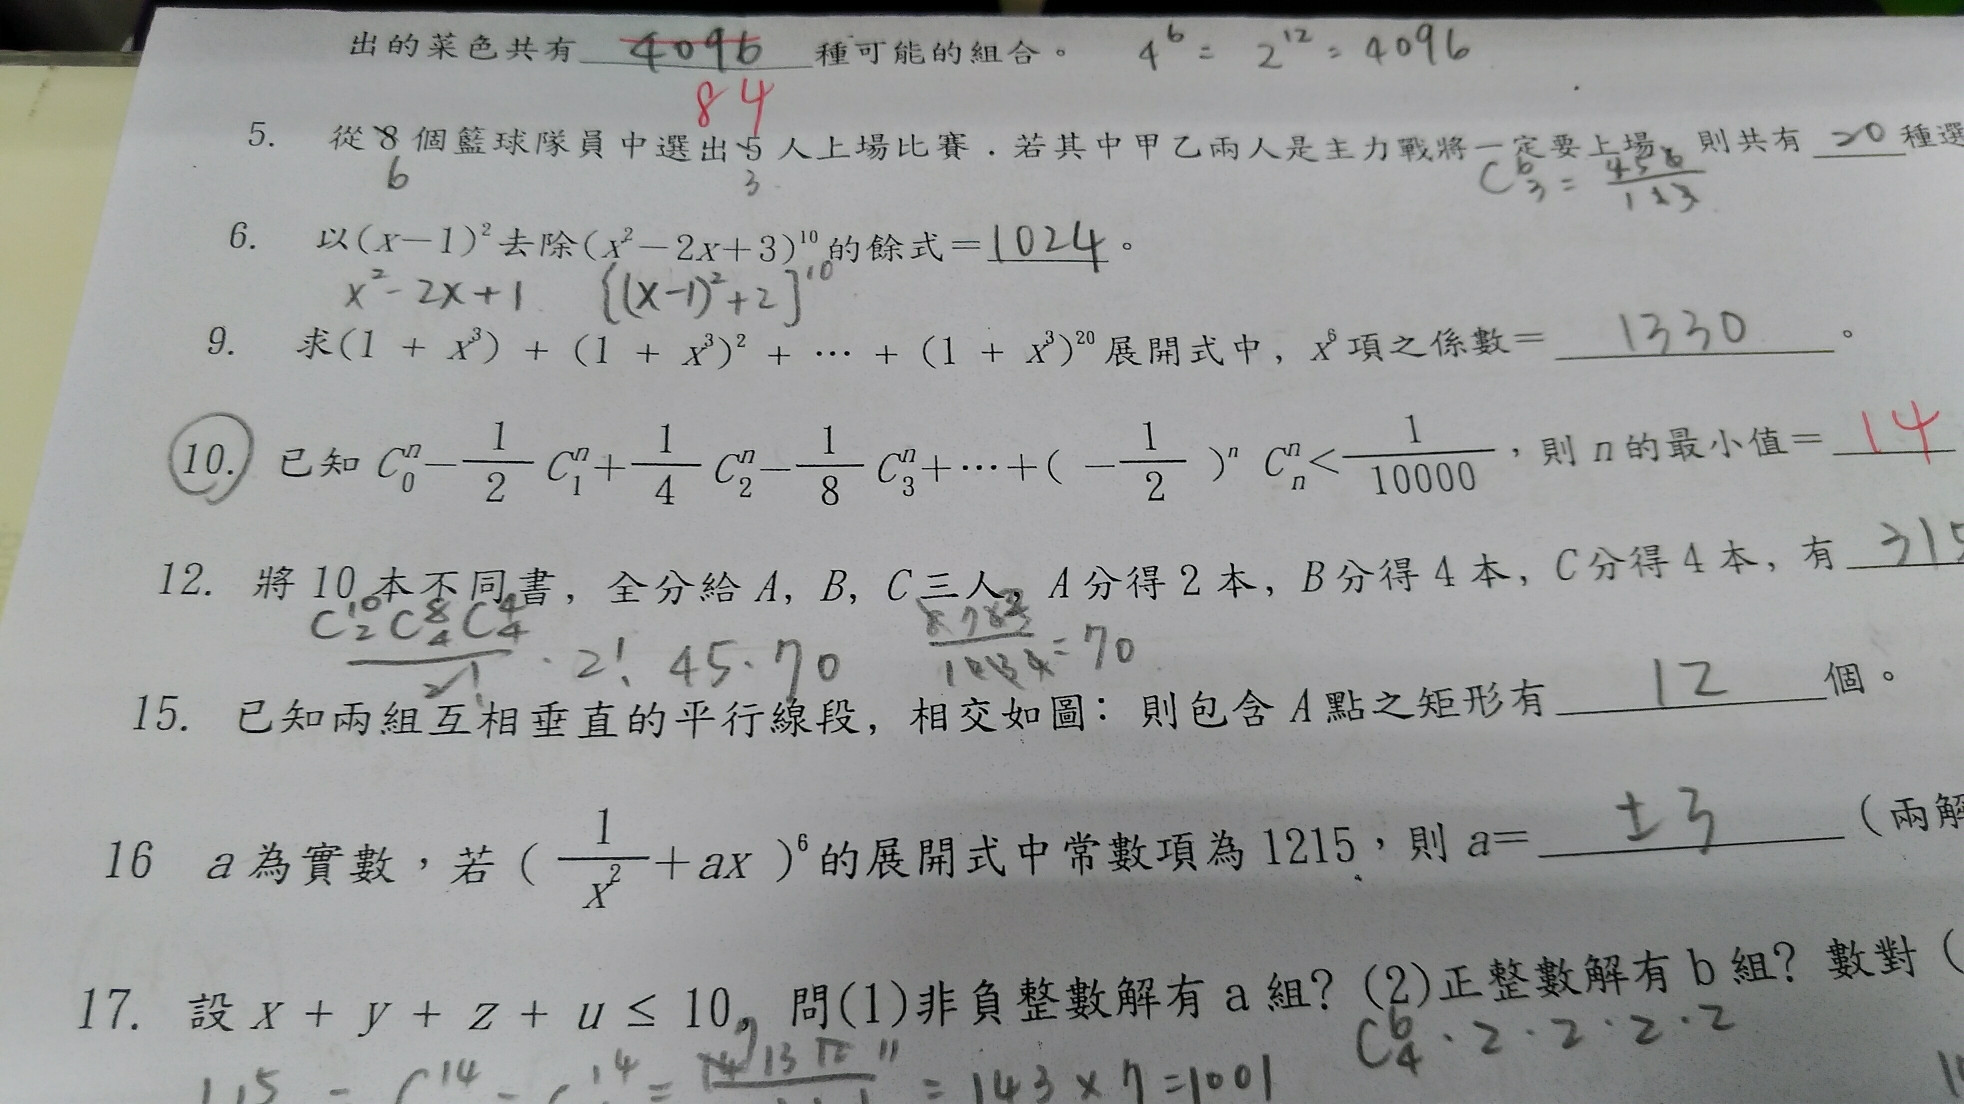 出的菜色共有 4096 種可能的組合。 4^6 = 2^12 = 4096
84
5. 從 8 個籃球隊員中選出 5 人上場比賽．若其中甲乙兩人是主力戰將一定要上場、則共有 20 種選
6 3 C^6_3 = 456/123
6. 以(x－1)^2 去除(x^2－2x＋3)^10 的餘式＝1024。
x^2-2x+1 {(x-1)^2+2]^10
9. 求(1 + x^3) + (1 + x^3)^2 + … + (1 + x^3)^20 展開式中, x^6 項之係數＝ 1330 。
10. 已知 C^n_0－1/2 C^n_1＋1/4 C^n_2－1/8 C^n_3＋…＋( －1/2 )^n C^n_n＜1/10000，則 n 的最小值＝ 14
12. 將 10 本不同書, 全分給 A, B, C 三人, A 分得 2 本, B 分得 4 本, C 分得 4 本, 有 315
C^10_2 C^8_4 C^4_4 / 2! · 2! 45·70 = 70
15. 已知兩組互相垂直的平行線段, 相交如圖: 則包含 A 點之矩形有 12 個。
16 a 為實數，若 ( 1/x^2＋ax )^6 的展開式中常數項為 1215，則 a＝ ±3 (兩解
17. 設 x + y + z + u ≤ 10, 問(1)非負整數解有 a 組? (2)正整數解有 b 組? 數對 (
C^6_4·2·2·2·2
= 143×7=1001